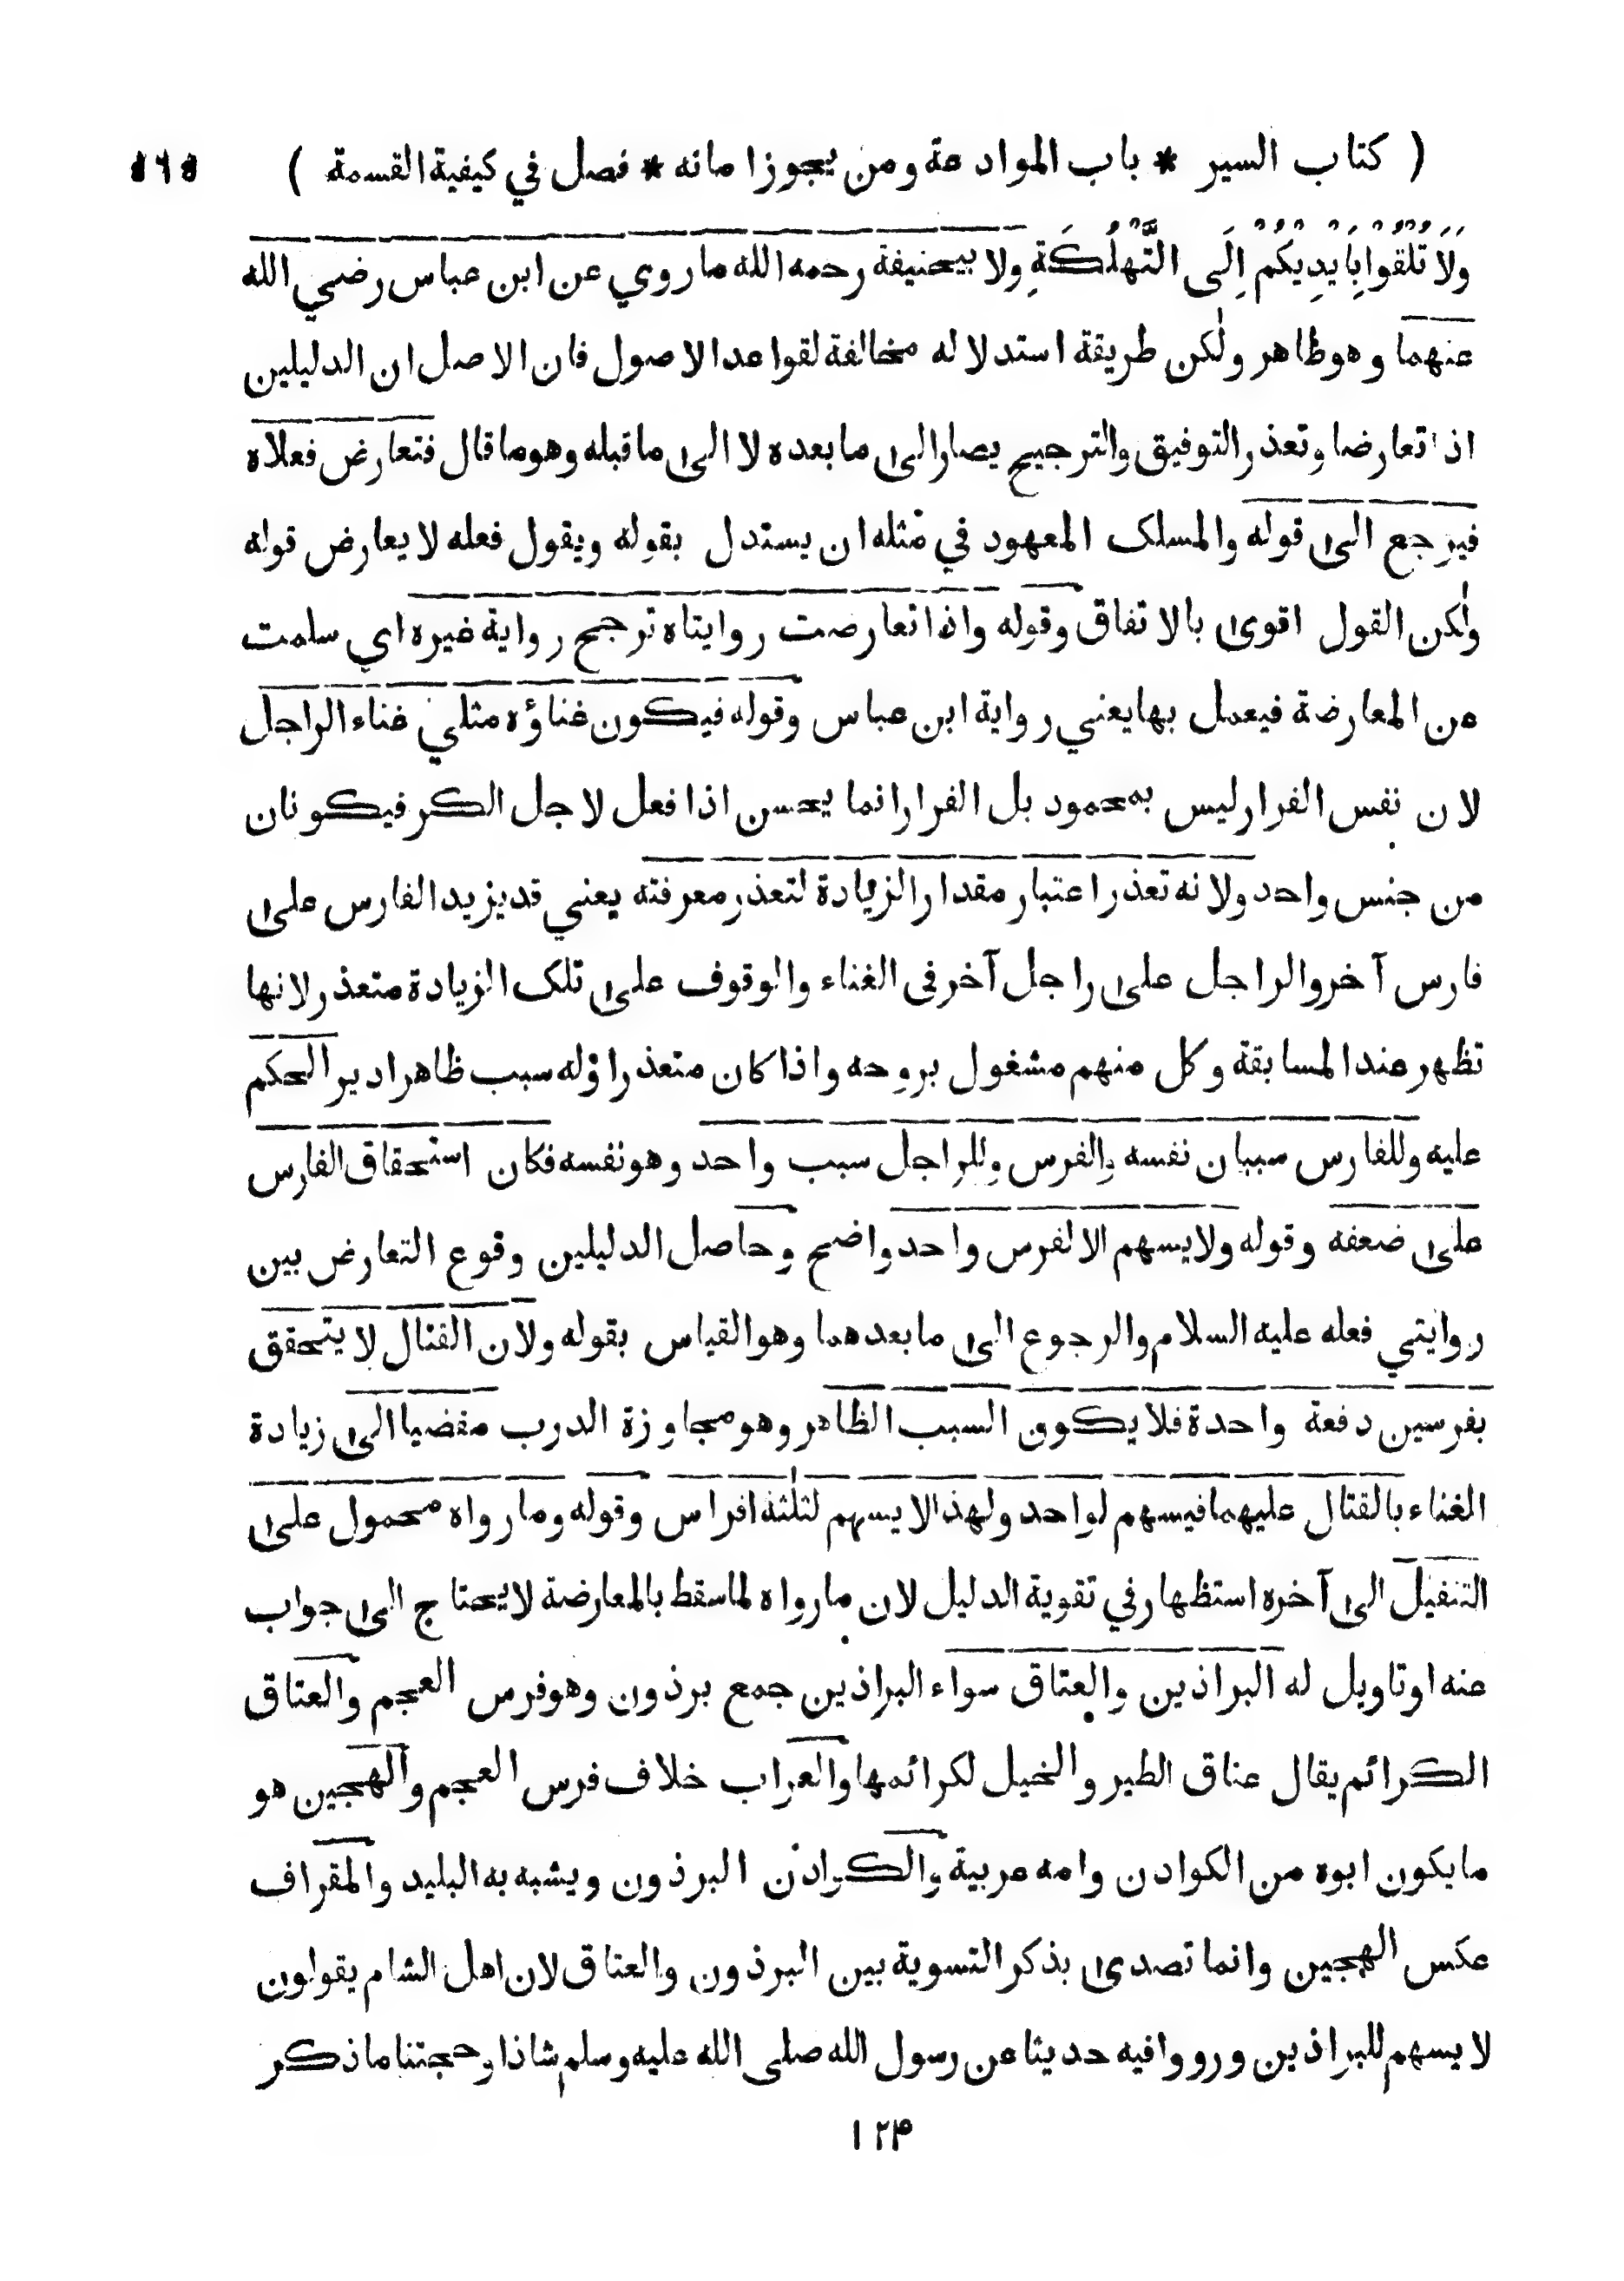 ( كتاب السير * باب الموادعة ومن يجوز امانه * فصل في كيفية القسمة )
وَلَا تُلْقُوْا بِاَيْدِيْكُمْ اِلَى التَّهْلُكَةِ ولابيحنيفة رحمه الله ما روي عن ابن عباس رضي الله
عنهما وهو ظاهر ولٰكن طريقة استدلاله مخالفة لقواعد الاصول فان الاصل ان الدليلين
اذا تعارضا وتعذر التوفيق والترجيح يصار الى ما بعده لا الى ما قبله وهو ما قال فتعارض فعلاه
فيرجع الى قوله والمسلك المعهود في مثله ان يستدل بقوله ويقول فعله لا يعارض قوله
ولٰكن القول اقوى بالاتفاق وقوله واذا تعارضت روايتاه ترجح رواية غيره اي سلمت
عن المعارضة فيعمل بها يعني رواية ابن عباس وقوله فيكون غناؤه مثلي غناء الراجل
لان نفس الفرار ليس بمحمود بل الفرار انما يحسن اذا فعل لاجل الكر فيكونان
من جنس واحد ولانه تعذر اعتبار مقدار الزيادة لتعذر معرفته يعني قد يزيد الفارس على
فارس آخر والراجل على راجل آخر في الغناء والوقوف على تلك الزيادة متعذر لانها
تظهر عند المسابقة وكل منهم مشغول بروحه واذا كان متعذرا وله سبب ظاهر ادير الحكم
عليه وللفارس سببان نفسه والفرس وللراجل سبب واحد وهو نفسه فكان استحقاق الفارس
على ضعفه وقوله ولا يسهم الا لفرس واحد واضح وحاصل الدليلين وقوع التعارض بين
روايتي فعله عليه السلام والرجوع الى ما بعدهما وهو القياس بقوله ولان القتال لا يتحقق
بفرسين دفعة واحدة فلا يكون السبب الظاهر وهو مجاوزة الدرب مفضيا الى زيادة
الغناء بالقتال عليهما فيسهم لواحد ولهذا لا يسهم لثلٰثة افراس وقوله وما رواه محمول على
التنفيل الى آخره استظهار في تقوية الدليل لان ما رواه لما سقط بالمعارضة لا يحتاج الى جواب
عنه او تاويل له البراذين والعتاق سواء البراذين جمع برذون وهو فرس العجم والعتاق
الكرائم يقال عتاق الطير والخيل لكرائمها والعراب خلاف فرس العجم والهجين هو
ما يكون ابوه من الكوادن وامه عربية والكوادن البرذون ويشبه به البليد والمقراف
عكس الهجين وانما تصدى بذكر التسوية بين البرذون والعتاق لان اهل الشام يقولون
لا يسهم للبراذين ورووا فيه حديثا عن رسول الله صلى الله عليه وسلم شاذا وحجتنا ما ذكر
١٢۴